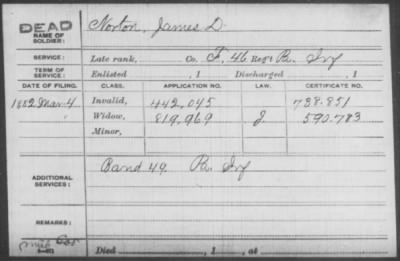 DEAD Norton, James D.
NAME OF SOLDIER:
SERVICE: Late rank, Co. F, 46 Reg't Pa. Inf
TERM OF SERVICE: Enlisted , 1 Discharged , 1
DATE OF FILING. CLASS. APPLICATION NO. LAW. CERTIFICATE NO.
1882 Mar. 4 Invalid, 442,045 738.851
Widow, 819,969 J 590,783
Minor,
ADDITIONAL SERVICES: Band 49 Pa. Inf
REMARKS:
Died , 1 , at